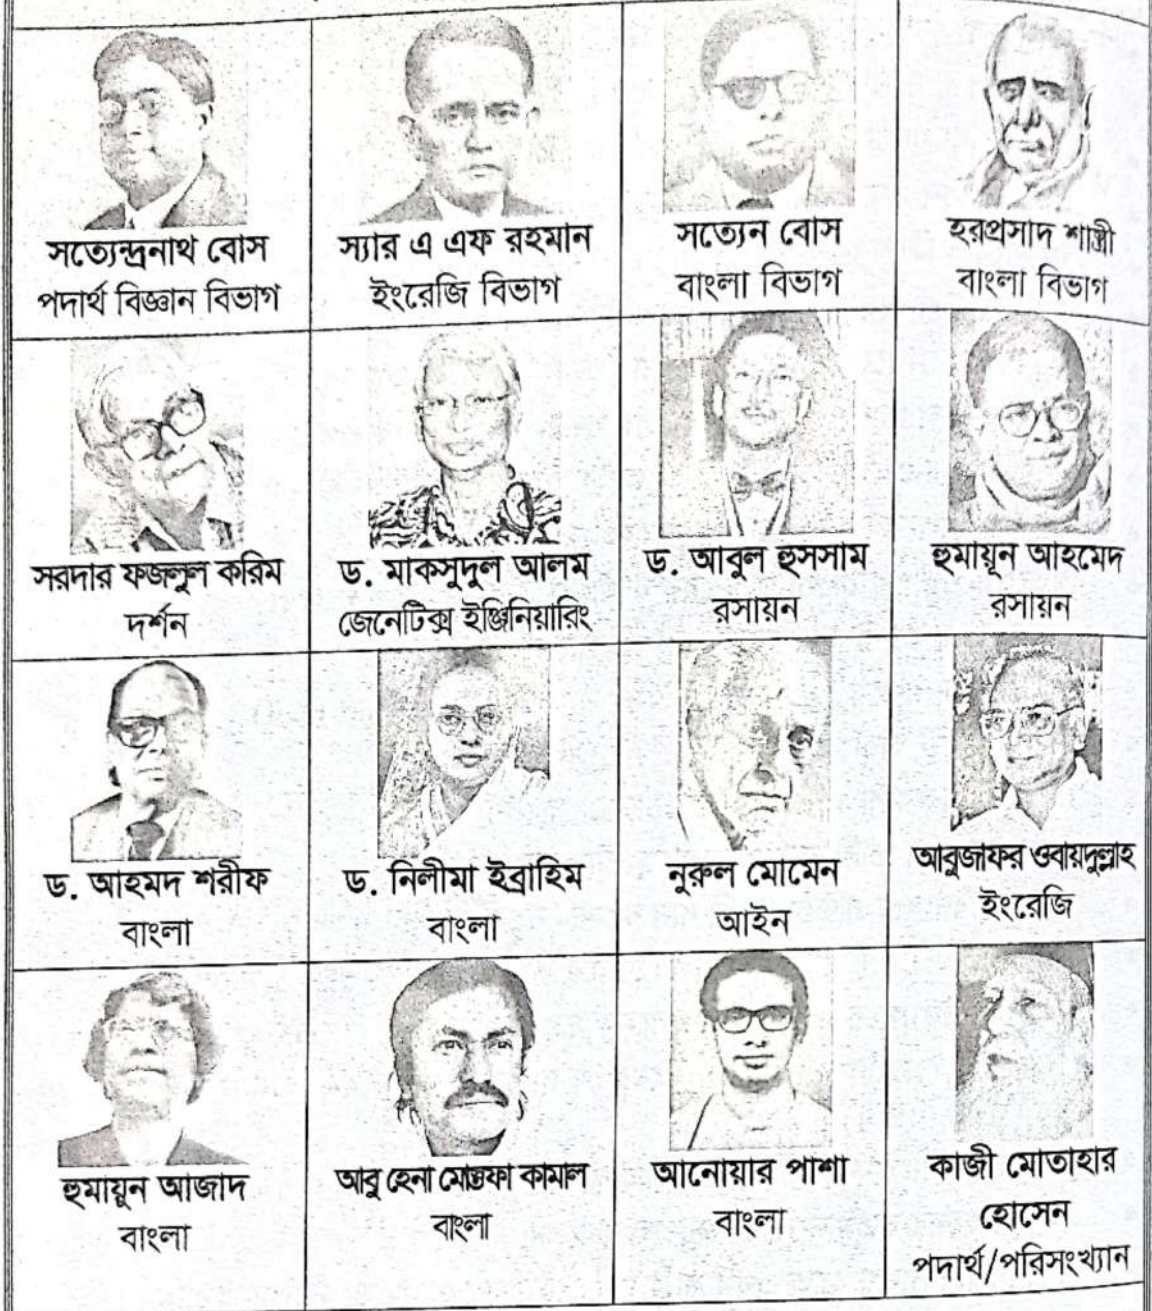 সত্যেন্দ্রনাথ বোস
পদার্থ বিজ্ঞান বিভাগ
স্যার এ এফ রহমান
ইংরেজি বিভাগ
সত্যেন বোস
বাংলা বিভাগ
হরপ্রসাদ শাস্ত্রী
বাংলা বিভাগ
সরদার ফজলুল করিম
দর্শন
ড. মাকসুদুল আলম
জেনেটিক্স ইঞ্জিনিয়ারিং
ড. আবুল হুসসাম
রসায়ন
হুমায়ূন আহমেদ
রসায়ন
ড. আহমদ শরীফ
বাংলা
ড. নিলীমা ইব্রাহিম
বাংলা
নুরুল মোমেন
আইন
আবুজাফর ওবায়দুল্লাহ
ইংরেজি
হুমায়ুন আজাদ
বাংলা
আবু হেনা মোস্তফা কামাল
বাংলা
আনোয়ার পাশা
বাংলা
কাজী মোতাহার
হোসেন
পদার্থ/পরিসংখ্যান